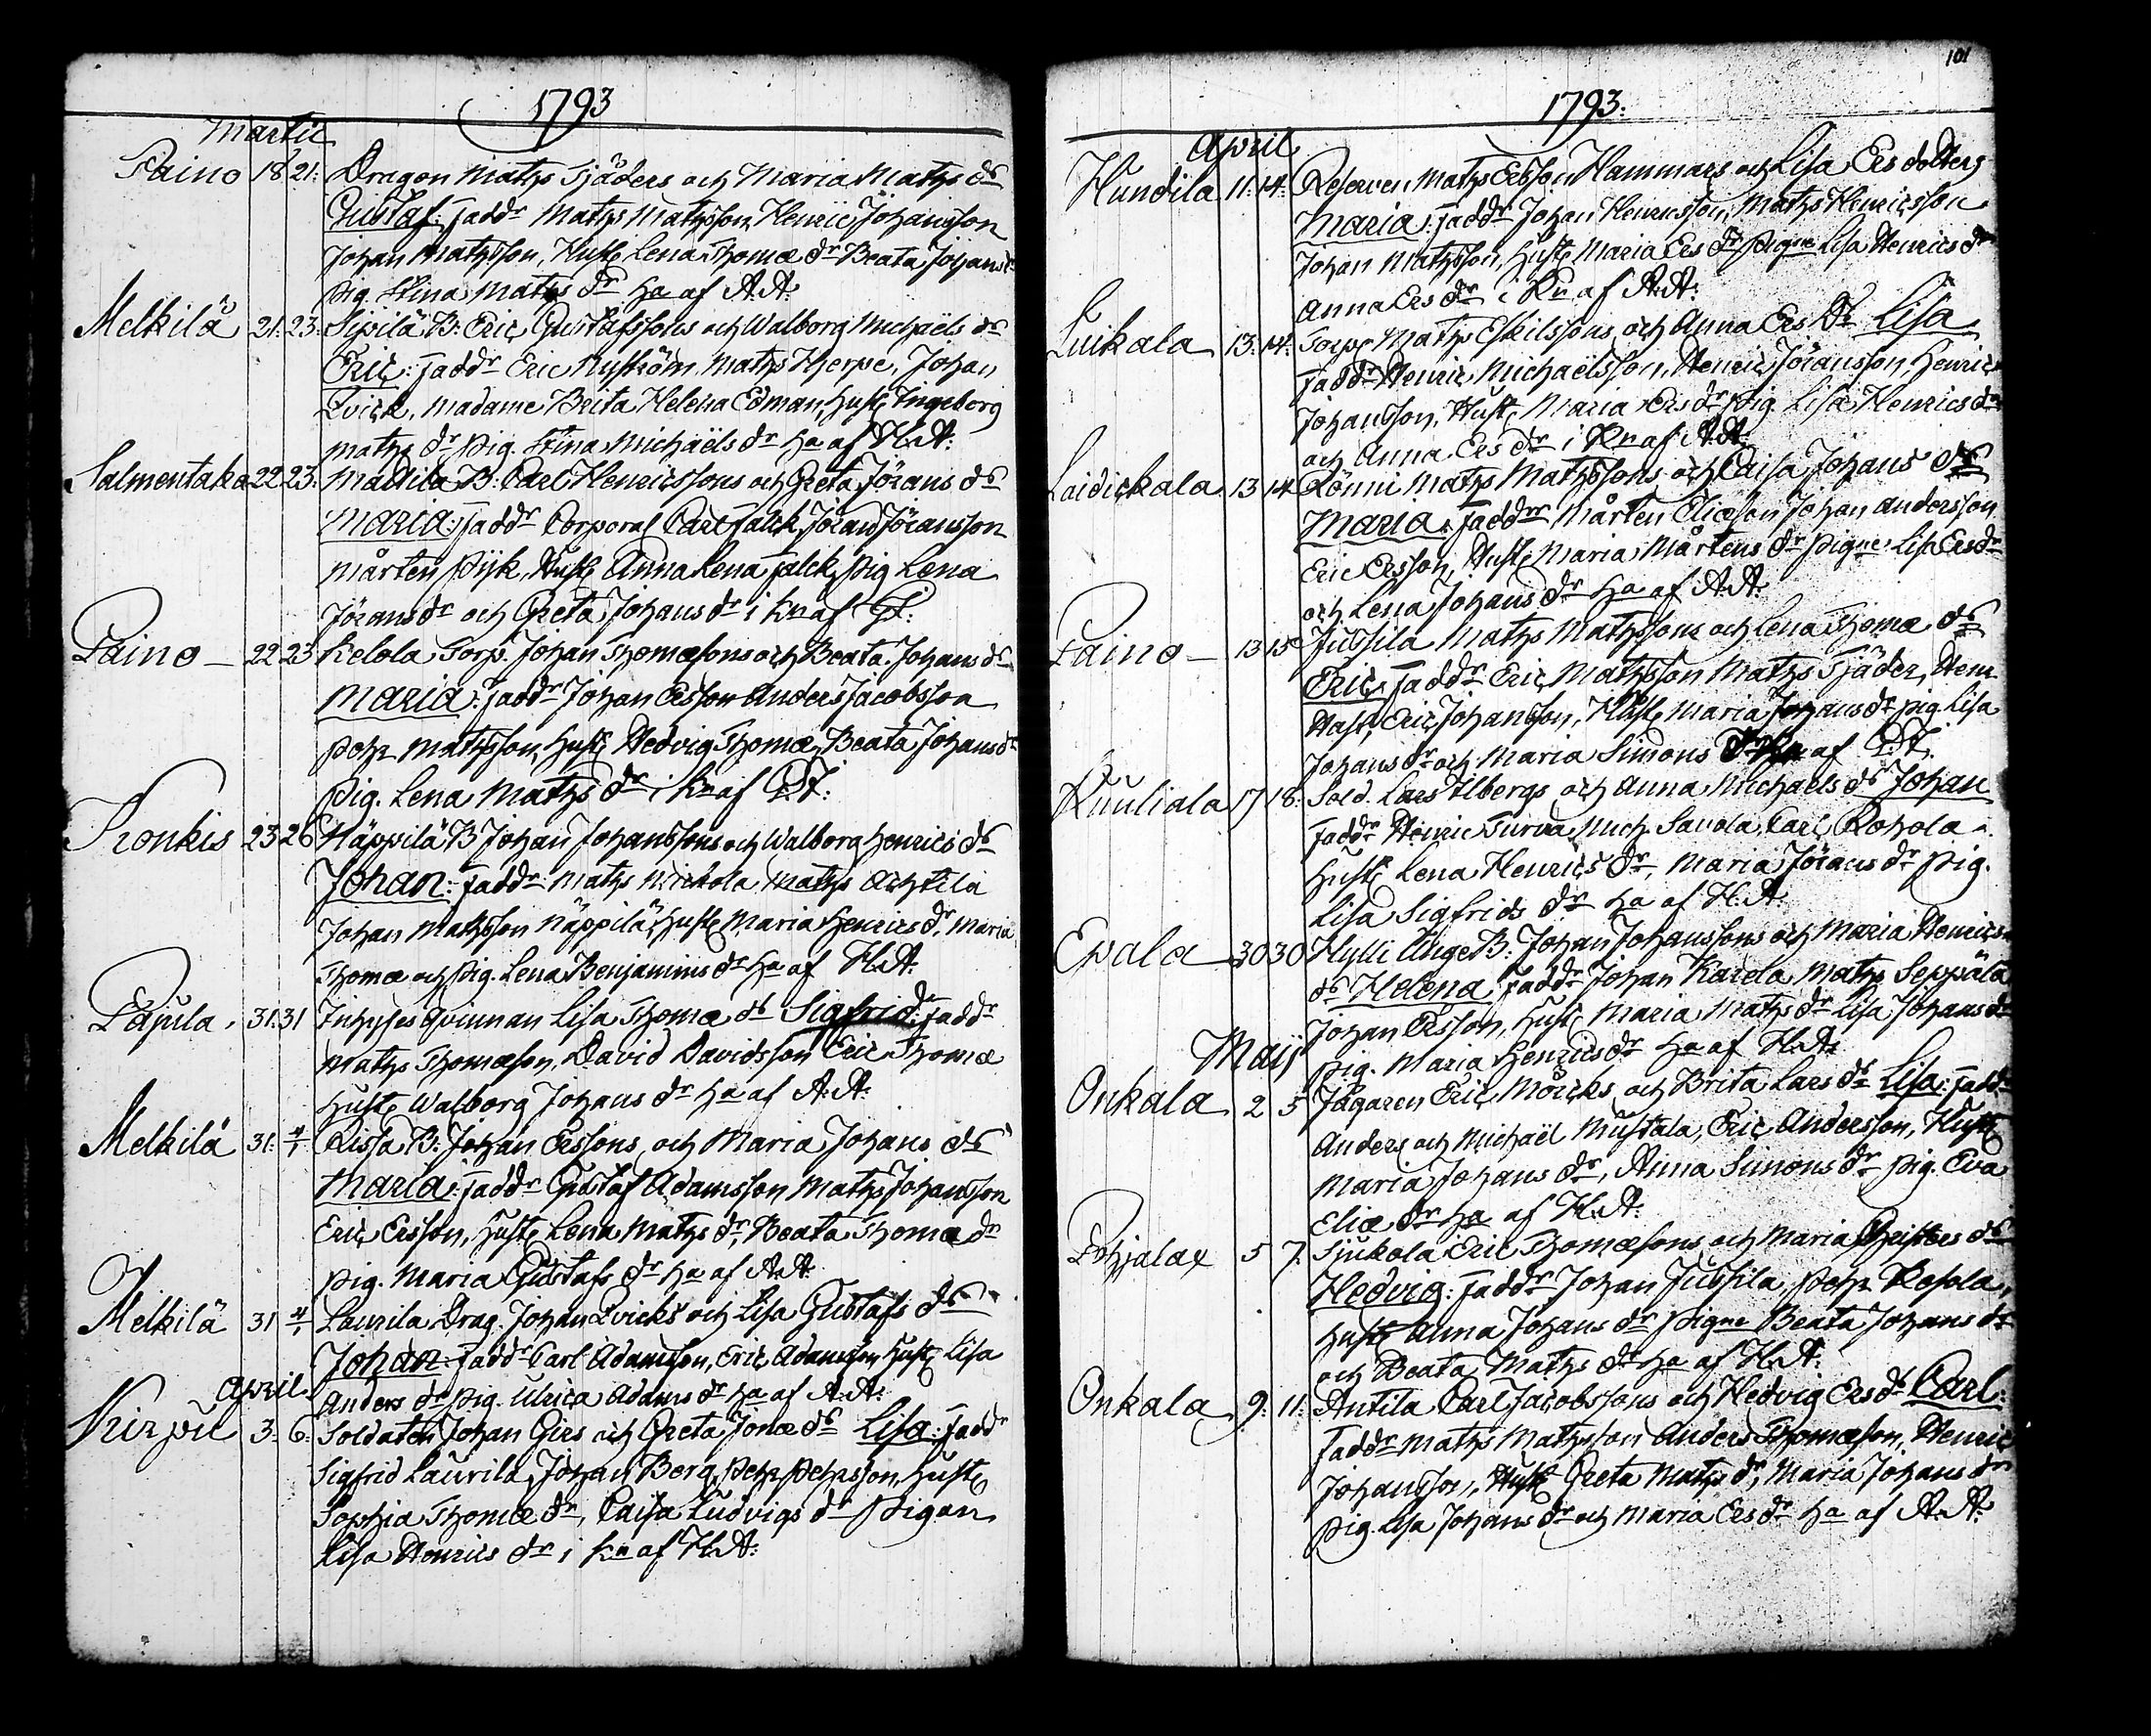 1793
Martii
Paino 18 21: Dragon Maths Tjäders och Maria Maths ds
Gustaf: faddr Maths Mathsson, Henric Johansson
Johan Mathsson, Hust. Lena Thomæ dr Beata Johans dr
pig. Stina Maths dr Ha af A.A:
Melkilä 21: 23: Sipilä B: Eric Gustafssons och Walborg Michaëls ds
Eric: faddr Eric Nyström, Maths Herpe, Johan
Qvick, Madame Brita Helena Edman, Hust. Ingeborg
Maths dr pig. Stina Michaëls dr Ha af H.A:
Salmentaka 22 23: Mattila B: Carl Henricssons och Greta Jörans ds
Maria: faddr Corporal Carl Falck, Jöran Jöransson
Mårten Pijk, Hust. Anna Lena Falck, pig Lena
Jörans dr och Greta Johans dr i Kn af
Paino 22 23 Kelola Torp. Johan Thomæsons och Beata Johans ds
Maria: faddr Johan Ersson Anders Jacobsson
Pehr Mathsson, Hust. Hedvig Thomæ, Beata Johans dr
pig. Lena Maths dr i Kn af
Pronkis 23 26 Näppilä B Johan Johanssons och Walborg Henrics ds
Johan: faddr Maths Mickola Maths Achtila
Johan Mathsson Näppilä, Hust. Maria Henrics dr, Maria
Thomæ och pig. Lena Benjamins dr Ha af H.A:
Pajula 31: 31 Inhyses qvinnan Lisa Thomæ ds Sigfrid: faddr
Maths Thomæson, David Davidsson Eric Thomæ
Hust. Walborg Johans dr Ha af A.A:
Melkilä 31: 4/1 Rissa B: Johan Erssons och Maria Johans ds
Maria: faddr Gustaf Adamsson Maths Johansson
Eric Ersson, Hust. Lena Maths dr, Beata Thomæ dr
pig. Maria Gustafs dr Ha af A.A:
Melkilä 31 4/1 Laurila Drag. Johan Qvicks och Lisa Gustafs ds
Johan faddr Carl Adamsson, Eric Adamsson Hust. Lisa
April
Anders dr pig. Ulrica Adams dr Ha af A.A:
Kirpu 3: 6: Soldaten Johan Girs och Greta Jonæ ds Lisa: faddr
Sigfrid Laurila, Johan Berg, Pehr Pehrsson, Hust.
Sophia Thomæ dr, Caisa Ludvigs dr Pigan
Lisa Henrics dr i Kn af H.A:
101
1793:
April
Hundila 11: 14: Reserven Maths Ersson Hammars och Lisa Ers dotters
Maria: faddr Johan Henricsson, Maths Henricsson
Johan Mathsson, Hust. Maria Ers dr pigne Lisa Henrics dr
Anna Ers dr i Kn af A.A:
Luikala 13: 14: Torp. Maths Eskilssons och Anna Ers ds Lisa
faddr Henric Michaëlsson, Henric Jöransson, Henric
Johansson, Hust. Maria Ers dr pig. Lisa Henrics dr
och Anna Ers dr i Kn af A.A:
Laidickala 13 14 Rönni Maths Mathssons och Caisa Johans ds
Maria: faddr Mårten Eliæson Johan Andersson
Eric Ersson, Hust. Maria Mårtens dr pigne Lisa Ers dr
och Lena Johans dr Ha af A.A:
Paino 13 15 Jussila Maths Mathssons och Lena Thomæ ds
Eric: faddr Eric Mathsson Maths Tjäder, Henr.
Hast, Eric Johansson, Hust. Maria Johans dr pig. Lisa
Johans dr och Maria Simons dr Ha af
Kuuliala 17 18: Sold. Lars Ilbergs och Anna Michaels ds Johan
faddr Henric Turva, Mich. Savola, Carl Rohola
Hust. Lena Henrics dr, Maria Jörans dr pig.
Lisa Sigfrids dr Ha af H.A:
Epala 30 30 Hylli Unge B: Johan Johanssons och Maria Henrics
ds Helena: faddr Johan Karela Maths Seppälä
Johan Ersson, Hust. Maria Maths dr Lisa Johans dr
Maij
pig. Maria Henrics dr Ha af H.A:
Onkala 2 5 Jägaren Eric Mörcks och Brita Lars ds Lisa: faddr
Anders och Michaël Mustala, Eric Andersson, Hust.
Maria Johans dr, Anna Simons dr pig. Eva
Eliæ dr Ha af H.A:
Pohjalax 5 7: Sjukola Eric Thomæsons och Maria Christers ds
Hedvig: faddr Johan Jussila, Pehr Kesola,
Hust. Anna Johans dr pigne Beata Johans dr
och Beata Maths dr Ha af H.A:
Onkala 9: 11: Antila Carl Jacobssons och Hedvig Ers ds Carl:
faddr Maths Mathsson Anders Thomæson, Henric
Johansson, Hust. Greta Maths dr, Maria Johans dr
pig. Lisa Johans dr och Maria Ers dr Ha af A.A: